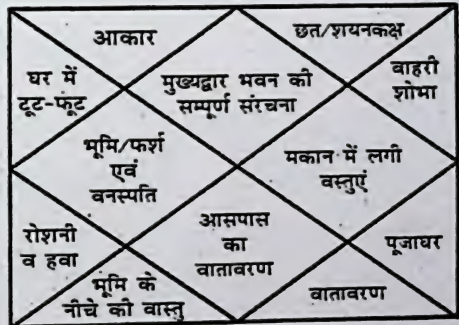 आकार
छत/शयनकक्ष
घर में
टूट-फूट
मुख्यद्वार भवन की
सम्पूर्ण संरचना
वाहरी
शोभा
भूमि/फर्श
एवं
वनस्पति
मकान में लगी
वस्तुएं
रोशनी
व हवा
आसपास
का
वातावरण
पूजाघर
भूमि के
नीचे की वास्तु
वातावरण